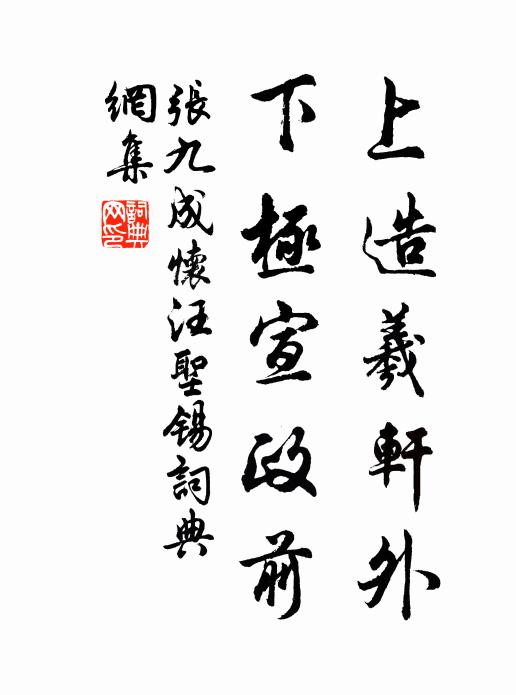 上造羲軒外
下極宣政前
張九成懷汪聖錫詞典
網集
詞典網印